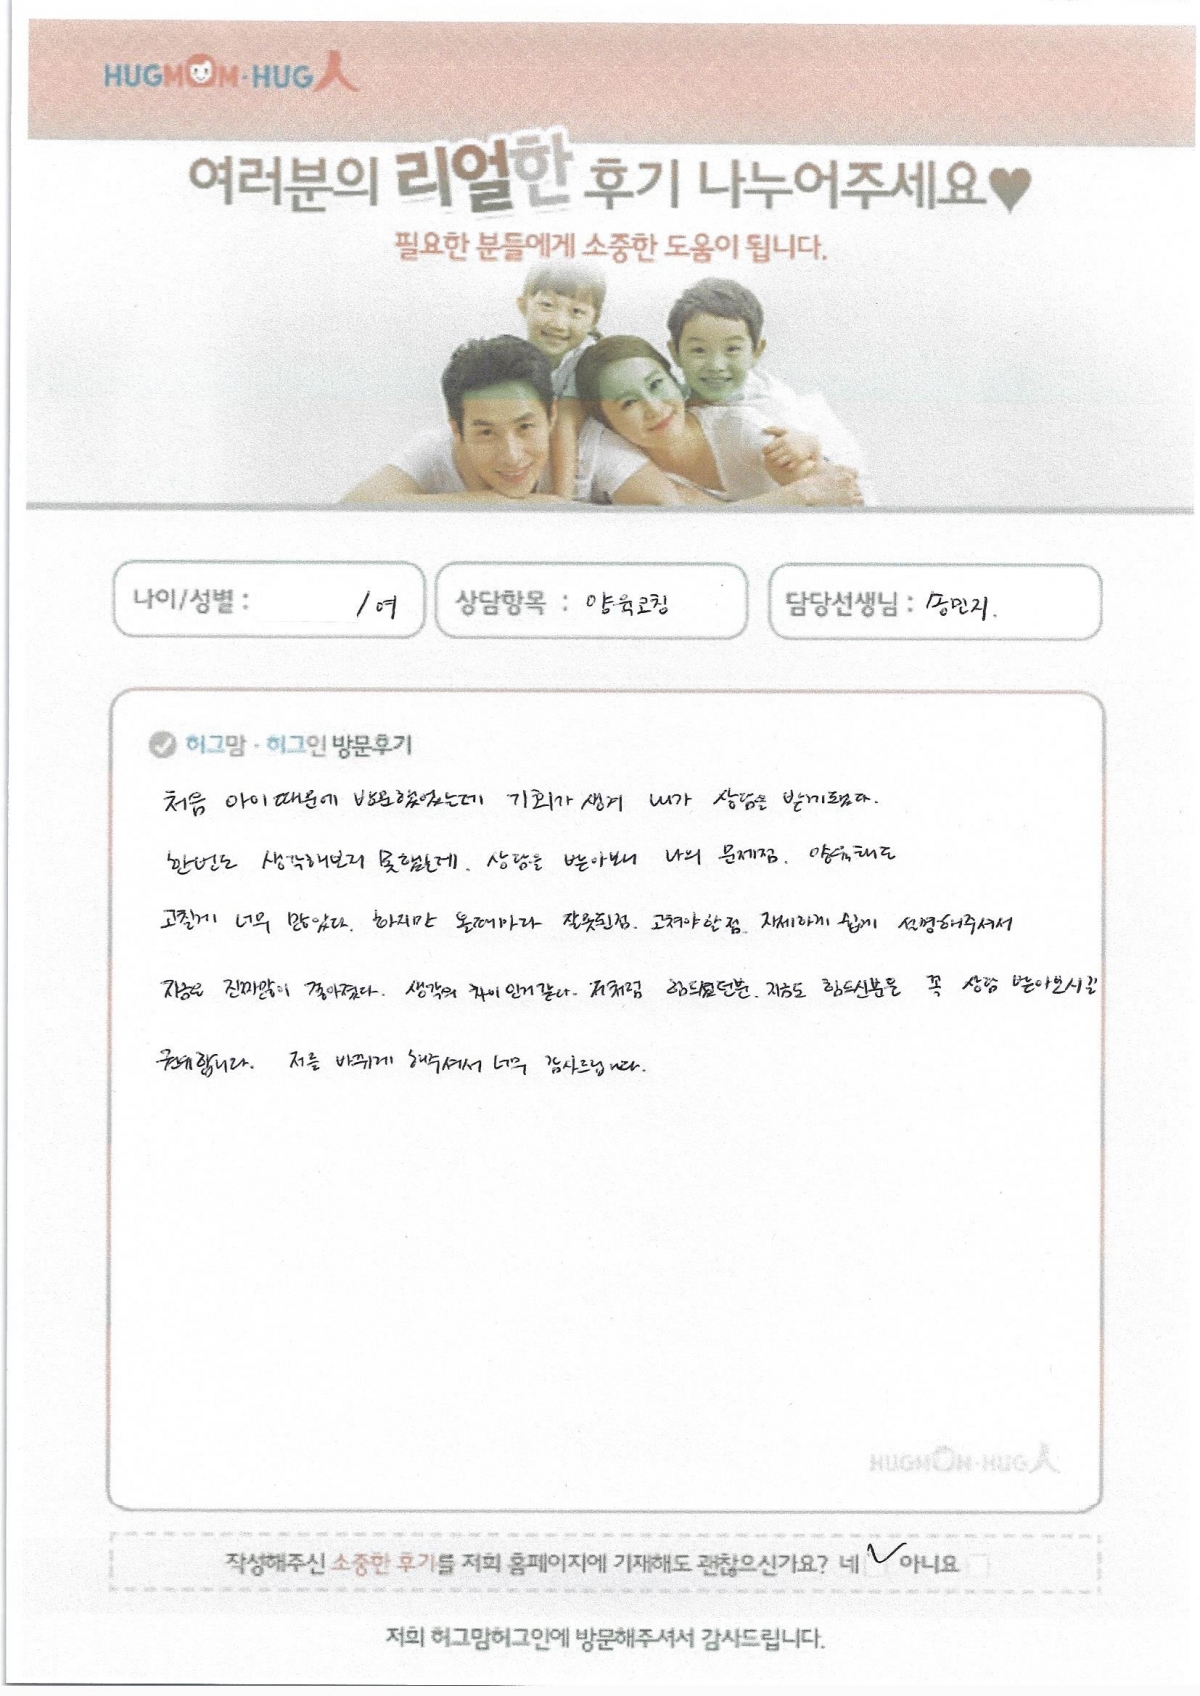 HUGMOM·HUG人
여러분의 리얼한 후기 나누어주세요♥
필요한 분들에게 소중한 도움이 됩니다.
나이/성별 : /여
상담항목 : 양육코칭
담당선생님 : 송민지.
허그맘·허그인 방문후기
처음 아이때문에 방문했었는데 기회가 생겨 내가 상담을 받게되었다.
한번도 생각해보지 못했는데. 상담을 받아보니 나의 문제점. 양육태도
고칠게 너무 많았다. 하지만 올때마다 잘못된점. 고쳐야할점. 자세하게 쉽게 설명해주셔서
지금은 진짜많이 좋아졌다. 생각의 차이인거같다. 저처럼 힘드셨던분. 지금도 힘드신분들 꼭 상담 받아보시길
권유합니다. 저를 바뀌게 해주셔서 너무 감사드립니다.
HUGMOM·HUG人
작성해주신 소중한 후기를 저희 홈페이지에 기재해도 괜찮으신가요? 네 ✓ 아니요
저희 허그맘허그인에 방문해주셔서 감사드립니다.